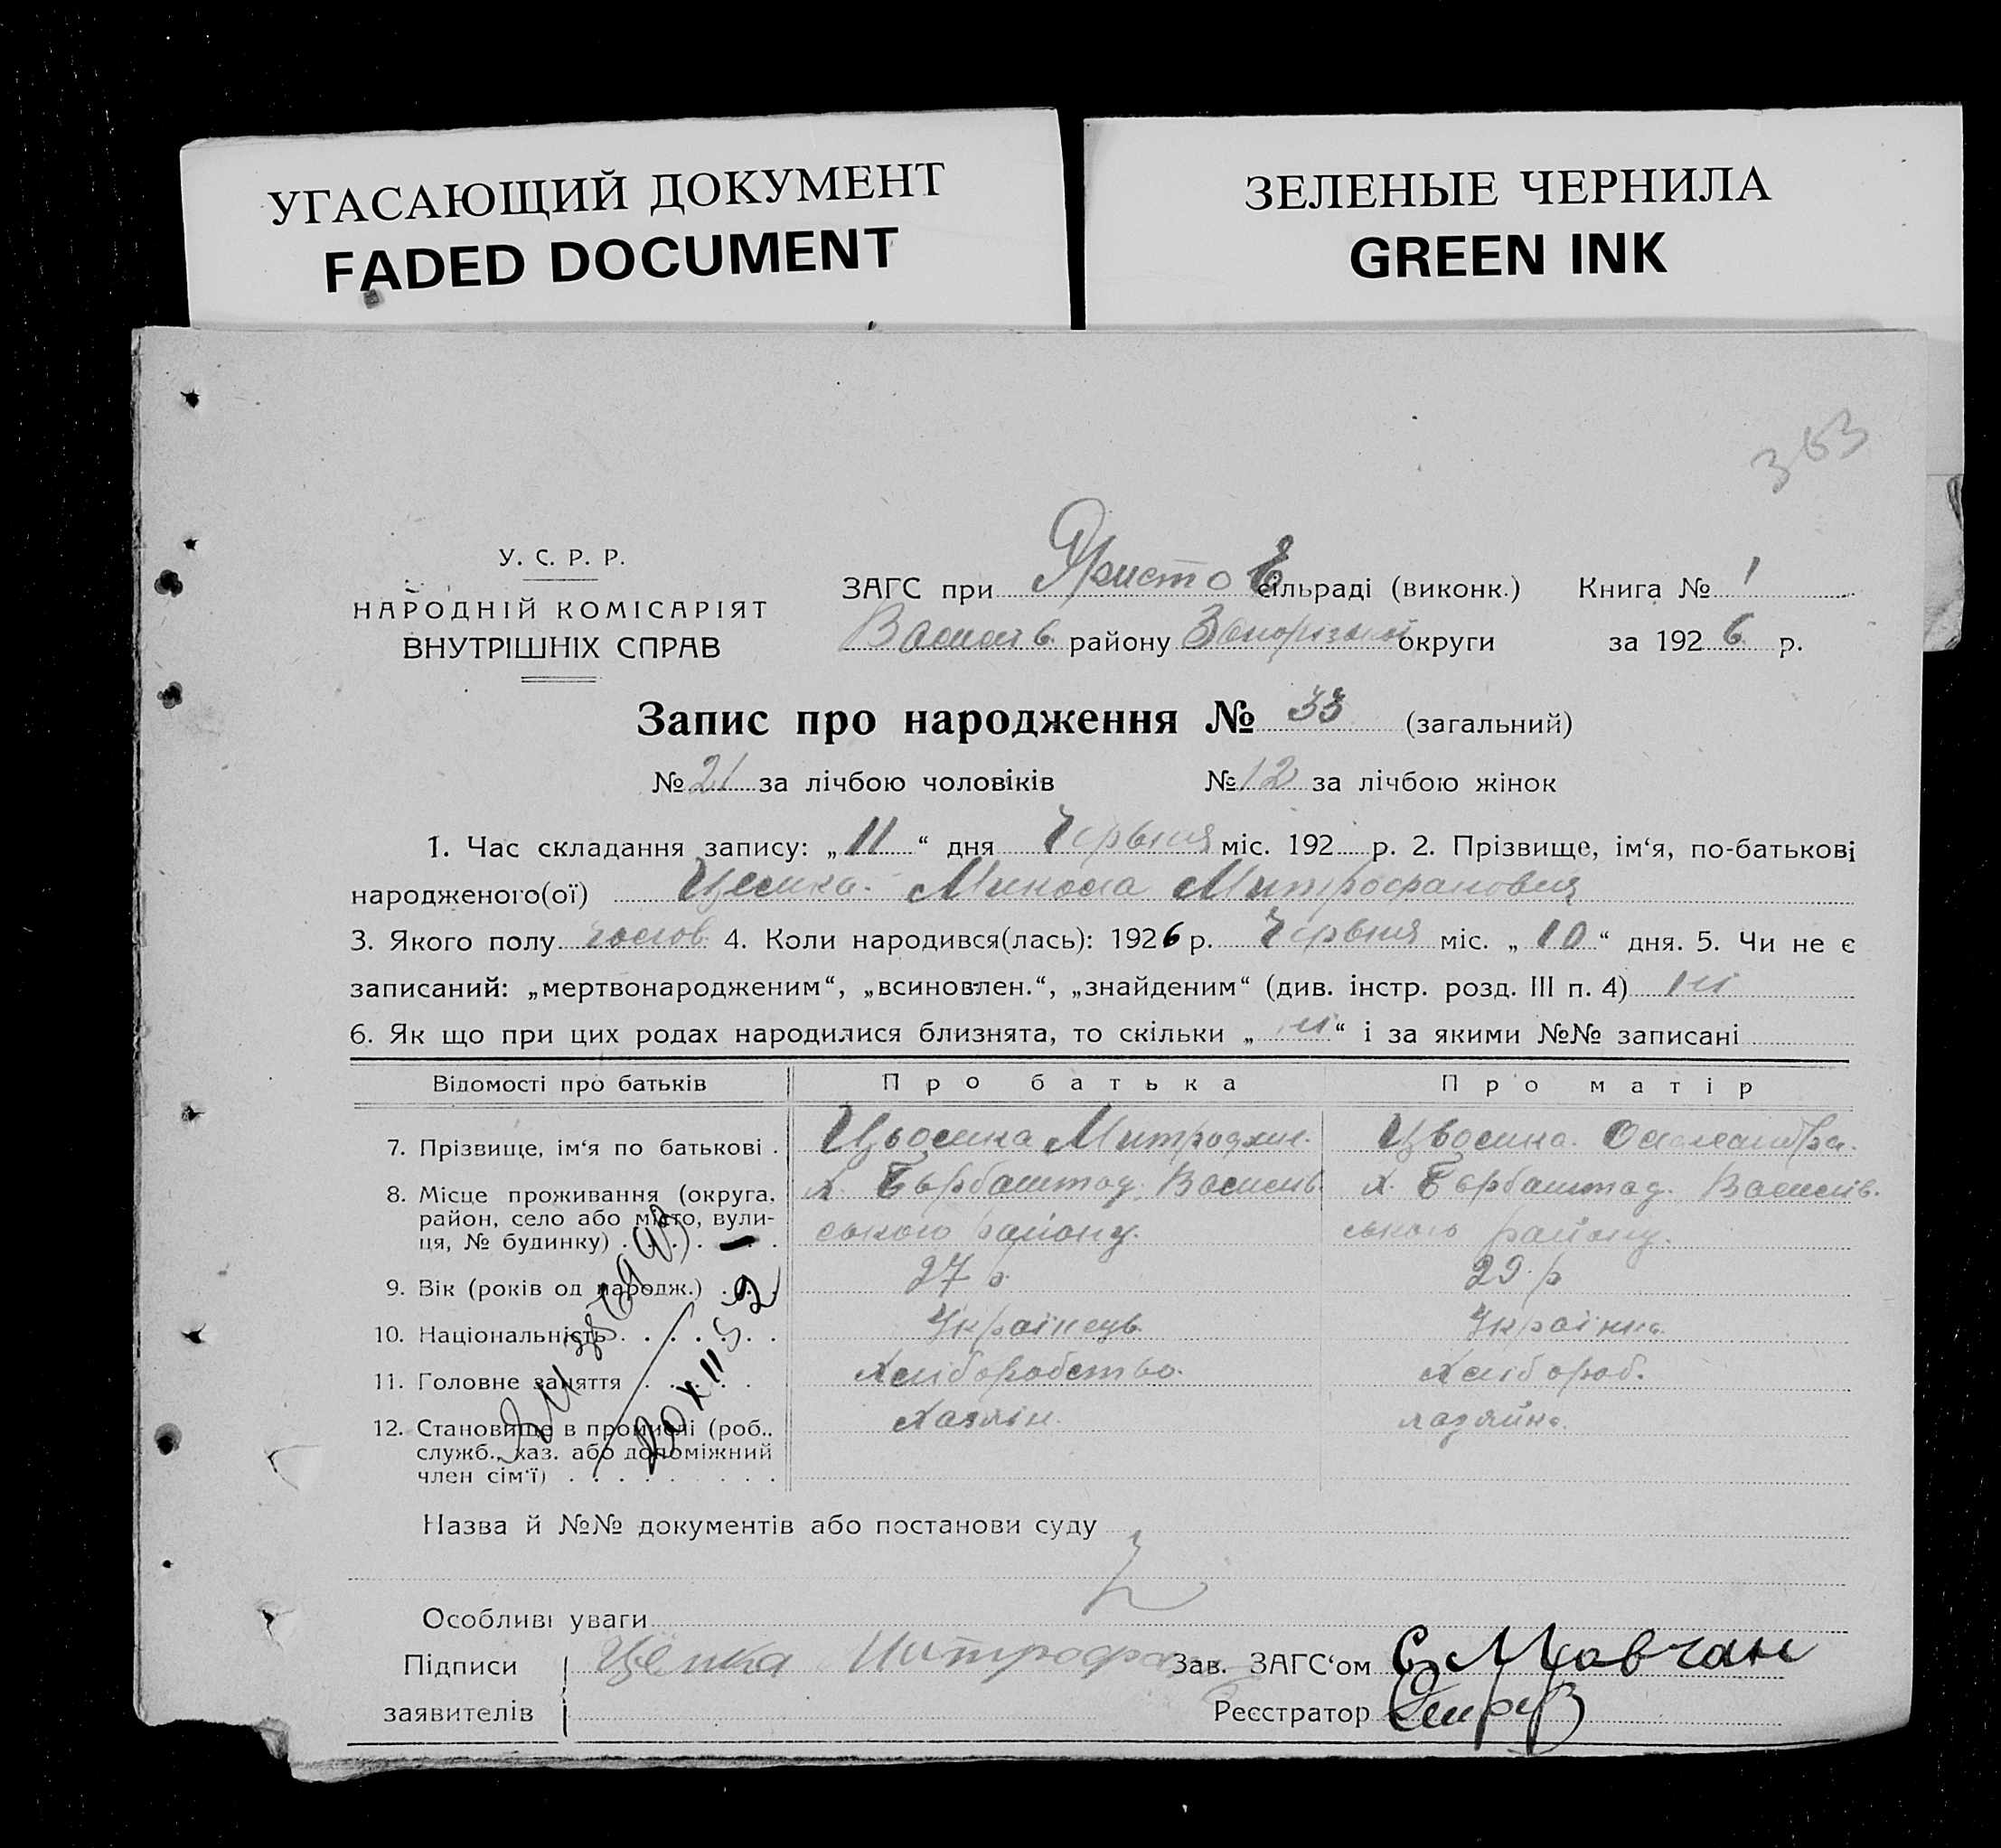 УГАСАЮЩИЙ ДОКУМЕНТ
FADED DOCUMENT
ЗЕЛЕНЫЕ ЧЕРНИЛА
GREEN INK
363
У. С. Р. Р.
НАРОДНІЙ КОМІСАРІЯТ
ВНУТРІШНІХ СПРАВ
ЗАГС при сільраді (виконк.) Книга № 1
Василів. району Запорізької округи за 1926 р.
Запис про народження № 33 (загальний)
№ 21 за лічбою чоловіків № 12 за лічбою жінок
1. Час складання запису: „11“ дня Червня міс. 192 р. 2. Прізвище, ім‘я, по-батькові
народженого(ої) Микола Митрофанович
3. Якого полу чолов. 4. Коли народився(лась): 1926 р. Червня міс. „10“ дня. 5. Чи не є
записаний: „мертвонародженим“, „всиновлен.“, „знайденим“ (див. інстр. розд. III п. 4) ні
6. Як що при цих родах народилися близнята, то скільки „ні“ і за якими №№ записані
Відомості про батьків Про батька Про матір
7. Прізвище, ім‘я по батькові . Цьопка Митрофан. Цьопка Олександра.
8. Місце проживання (округа, х. Бърбаштад. Василів. х. Бърбаштад. Василів.
район, село або місто, вули- ського району. ського району.
ця, № будинку) . . . . .
9. Вік (років од народж.) . . 27 р. 29 р
10. Національність . . . . . . Українець Українка
11. Головне заняття . . . . . Хліборобство. Хлібороб.
12. Становище в промислі (роб., Хазяїн. хазяйка
служб., хаз. або допоміжний
член сім‘ї) . . . . . . . .
20 XII 52
Назва й №№ документів або постанови суду
Особливі уваги
Підписи Цёпка Митрофан Зав. ЗАГС‘ом Мовчан
заявителів Реєстратор